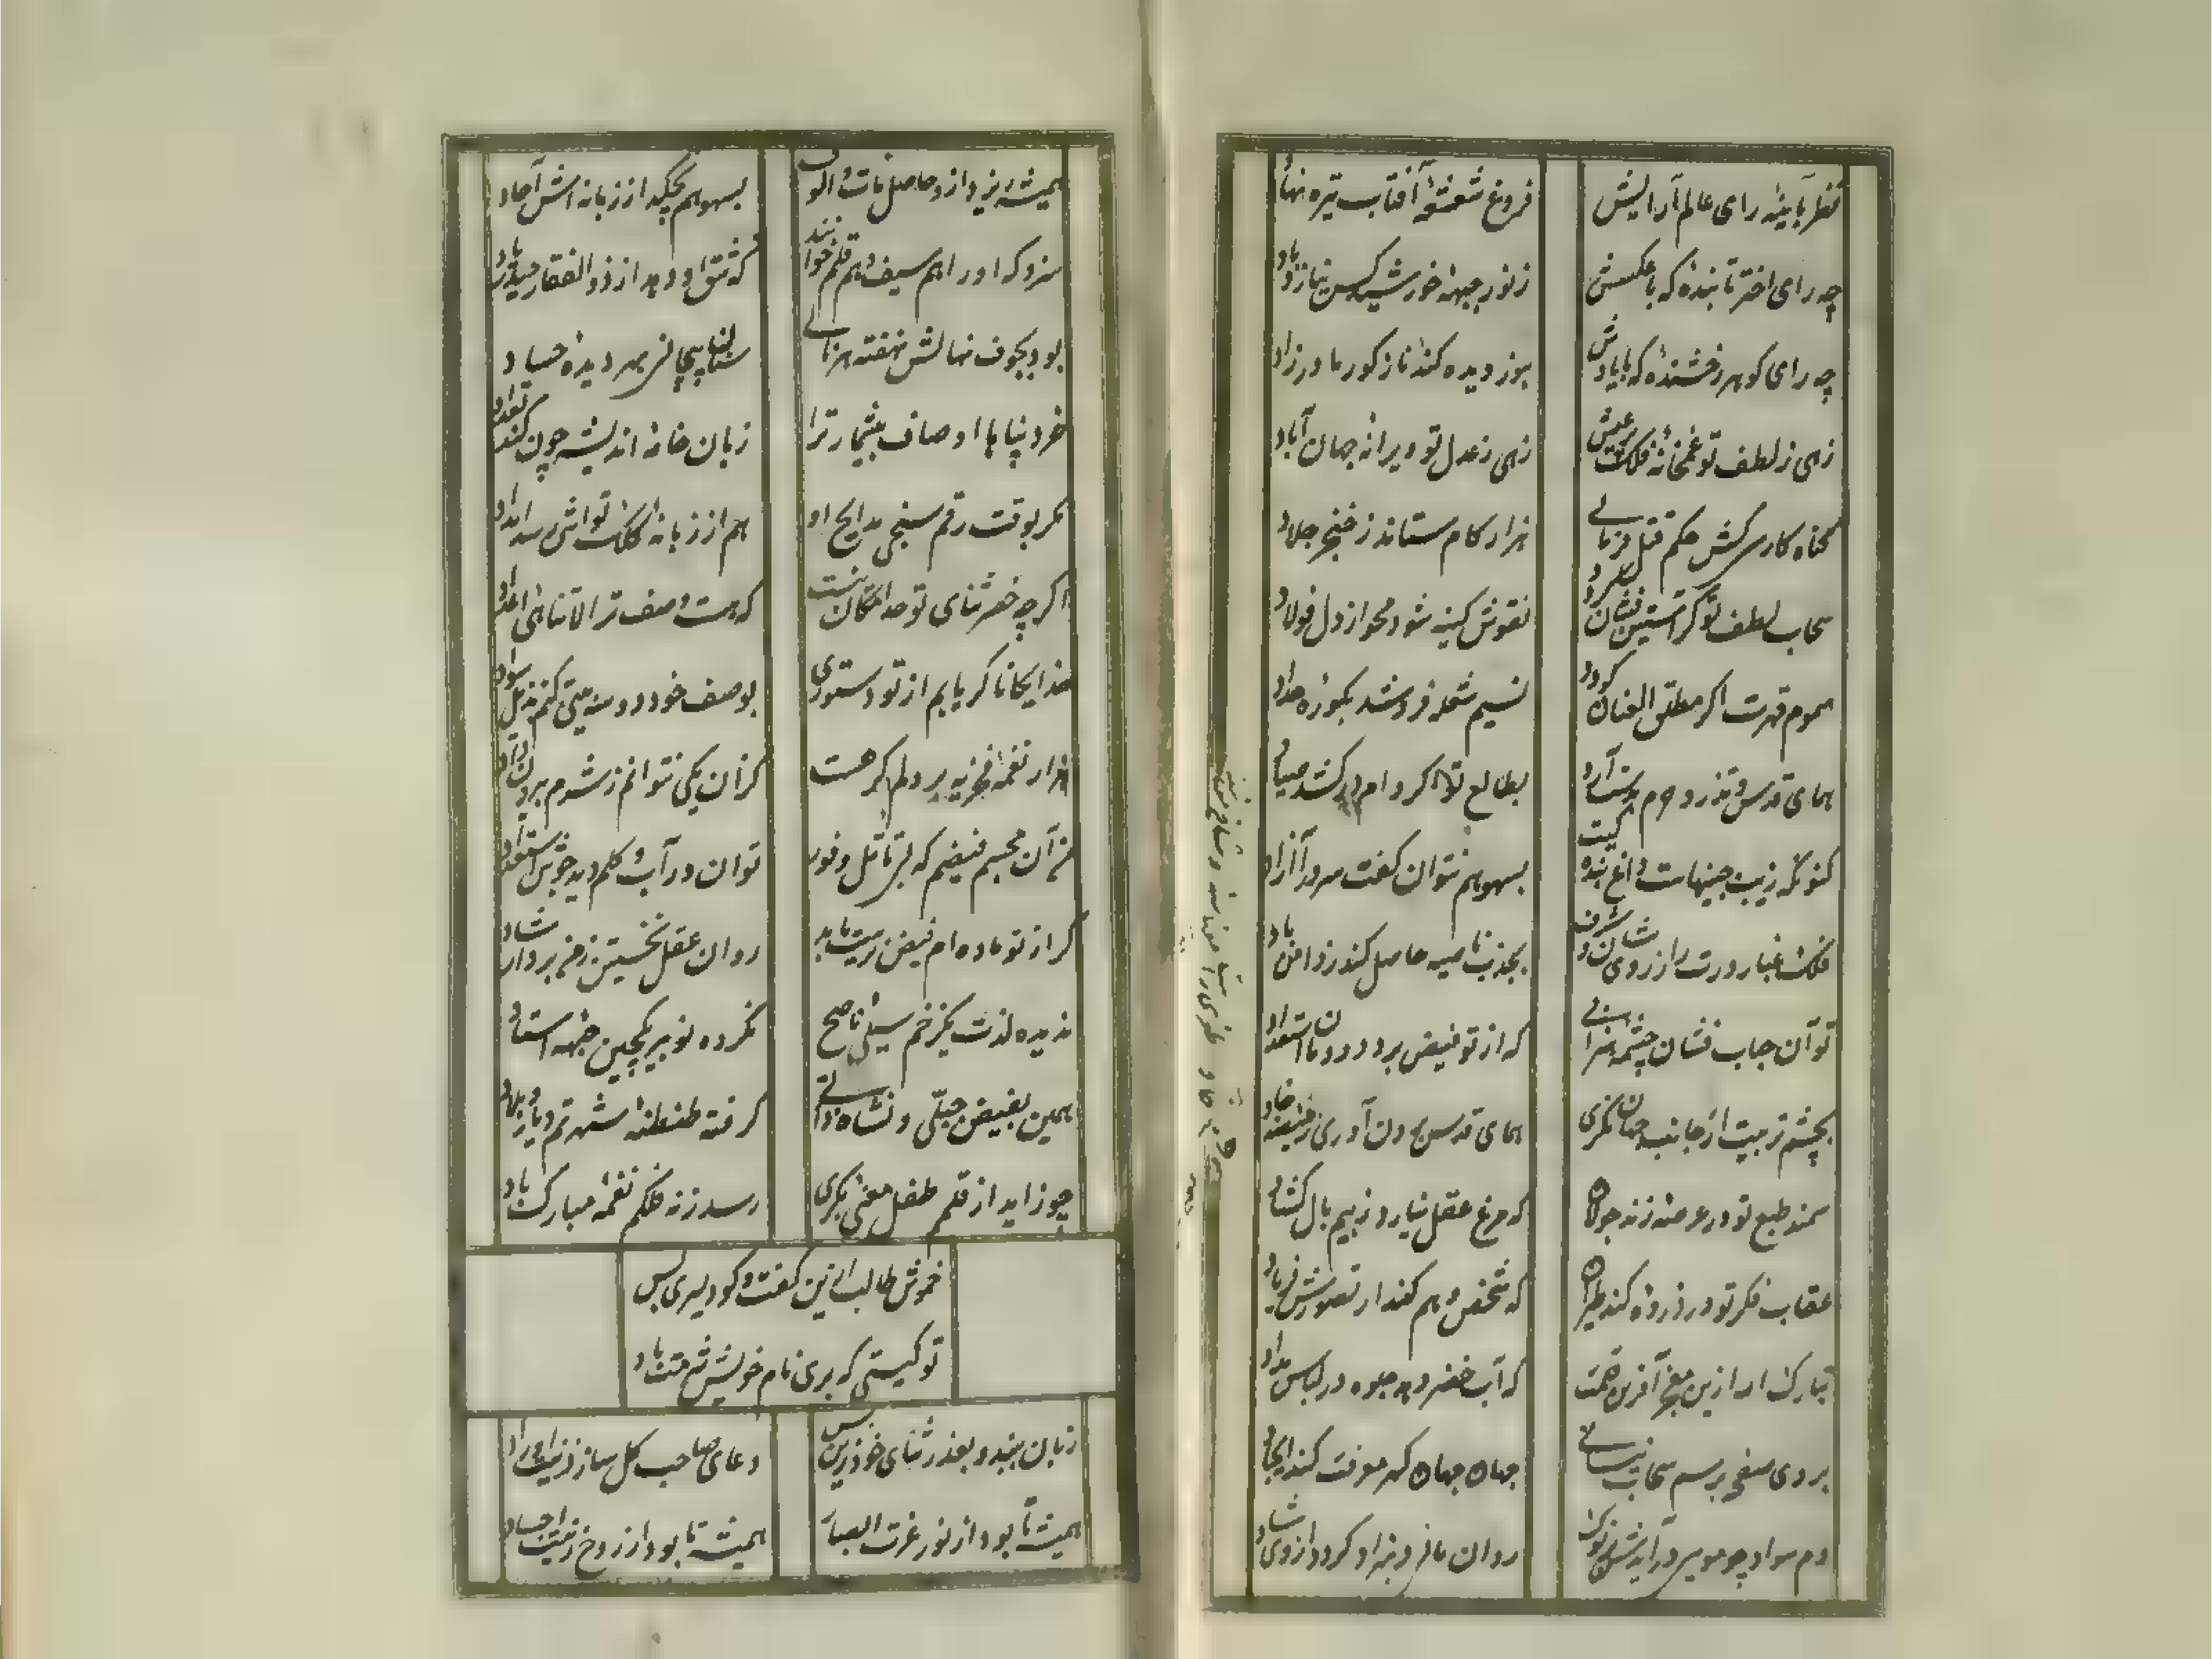 نظر بآینهٔ رای عالم آرایش
فروغ شعشعهٔ آفتاب تیره نهاد
چه رای اختر تابنده که با عکسش
ز نور جبهه خورشید کس نیارد یاد
چه رای کوهر رخشنده که با یادش
بنور دیده کند ناز کور مادرزاد
زهی ز لطف تو غمخانهٔ فلک پر عیش
زهی ز عدل تو ویرانه جهان آباد
کناه کار سرکش حکم قتل فرمائی
هزار کام ستاند ز خنجر جلاد
سحاب لطف تو کر آستین فشان کردد
نقوش کینه شود محو از دل فولاد
سموم قهرت اکر مطلق العنان کردد
نسیم شعله فروشد بکوره حداد
همای قدس و تذرو حرم بدست آرد
بطالع تو اکر دام در کشد صیاد
کنونکه زیب جبینهاست داغ بنده کیت
بسهو هم نتوان کفت سرو را آزاد
فلک غبار درت را ز روی شان و شرف
بجذب ناصیه حاصل کند ز دامن باد
تو آن حباب فشان چشمه هنرزائی
که از تو فیض برد دودمان استعداد
بچشم تربیت از جانب جهان نکری
سمند طبع تو در عرصه زند جولان
که مرغ عقل نیارد ز بیم بال کشاد
عقاب فکر تو در ذروه کند طیران
که شخص وهم کند از تصورش فریاد
تبارک الله ازین معنی آفرین قلمت
که آب خضر دهد جلوه در لباس مداد
بروی صفحه برسم سحاب نیسانی
جهان جهان کهر معرفت کند ایجاد
دم سواد چو مو سر درآید بنوک
روان مانی و بهزاد کردد از وی شاد
همیشه ریزد ازو حاصل مآت و الوف
بسهو هم چکد از زبانه اش آحاد
سزد که اورا هم سیف و هم قلم خوانند
که شق او دهد از ذوالفقار حیدر یاد
بود بجوف نهالش نهفته هر نالی
سنان پیچانی بهر دیده حساد
خرد پناها اوصاف بیشمار ترا
زبان خامهٔ اندیشه چون کند تعداد
مکر بوقت رقم سنجی مدایح او
هم از زبانهٔ کلک تواش رسد امداد
اکرچه حصر ثنای تو حد امکان نیست
که هست وصف ترا لاتناهی اعداد
خدایکانا کر یابم از تو دستوری
بوصف خود دو سه بیتی کنم ذیل سواد
هزار نغمهٔ فخریه بر دلم کره است
کزان یکی نتوانم ز شرم بیرون داد
من آن مجسم فیضم که از تاتل و فور
توان در آب و کلم دید جوش استعداد
کر از تو ماده ام فیض تربیت یابد
روان عقل نخستین ز من برد ارشاد
ندیده لذت یکزخم سیلی ناصح
نکرده نونیر یکچین جبهه استاد
همین بفیض جبلی و نشاه ذاتی
کرفته طنطنهٔ شهرتم دیار و بلاد
چو زاید از قلم طفل معنی بکری
رسد ز نه فلکم نغمه مبارک باد
خموش طالب ازین کفت و کو دلیری بس
تو کیستی که بری نام خویش شرمت باد
زبان ببند و بعذر ثنای خود زین پس
دعای صاحب کل ساز زینت اوراد
همیشه تا بود از نور عزت ابصار
همیشه تا بود از روح زینت اجساد